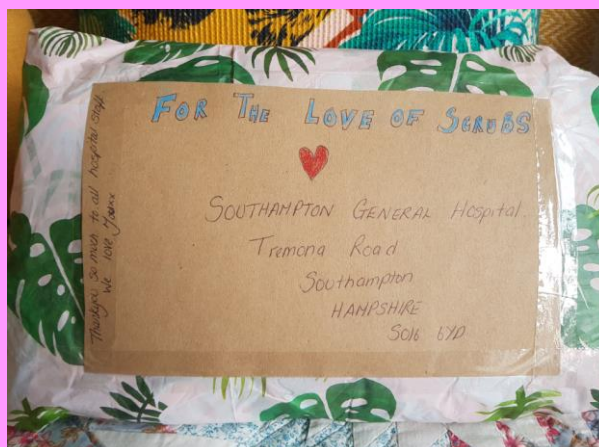 FOR THE LOVE OF SCRUBS
SOUTHAMPTON GENERAL Hospital.
Tremona Road
Southampton
HAMPSHIRE
SO16 6YD
Thankyou so much to all hospital staff
We love you xx